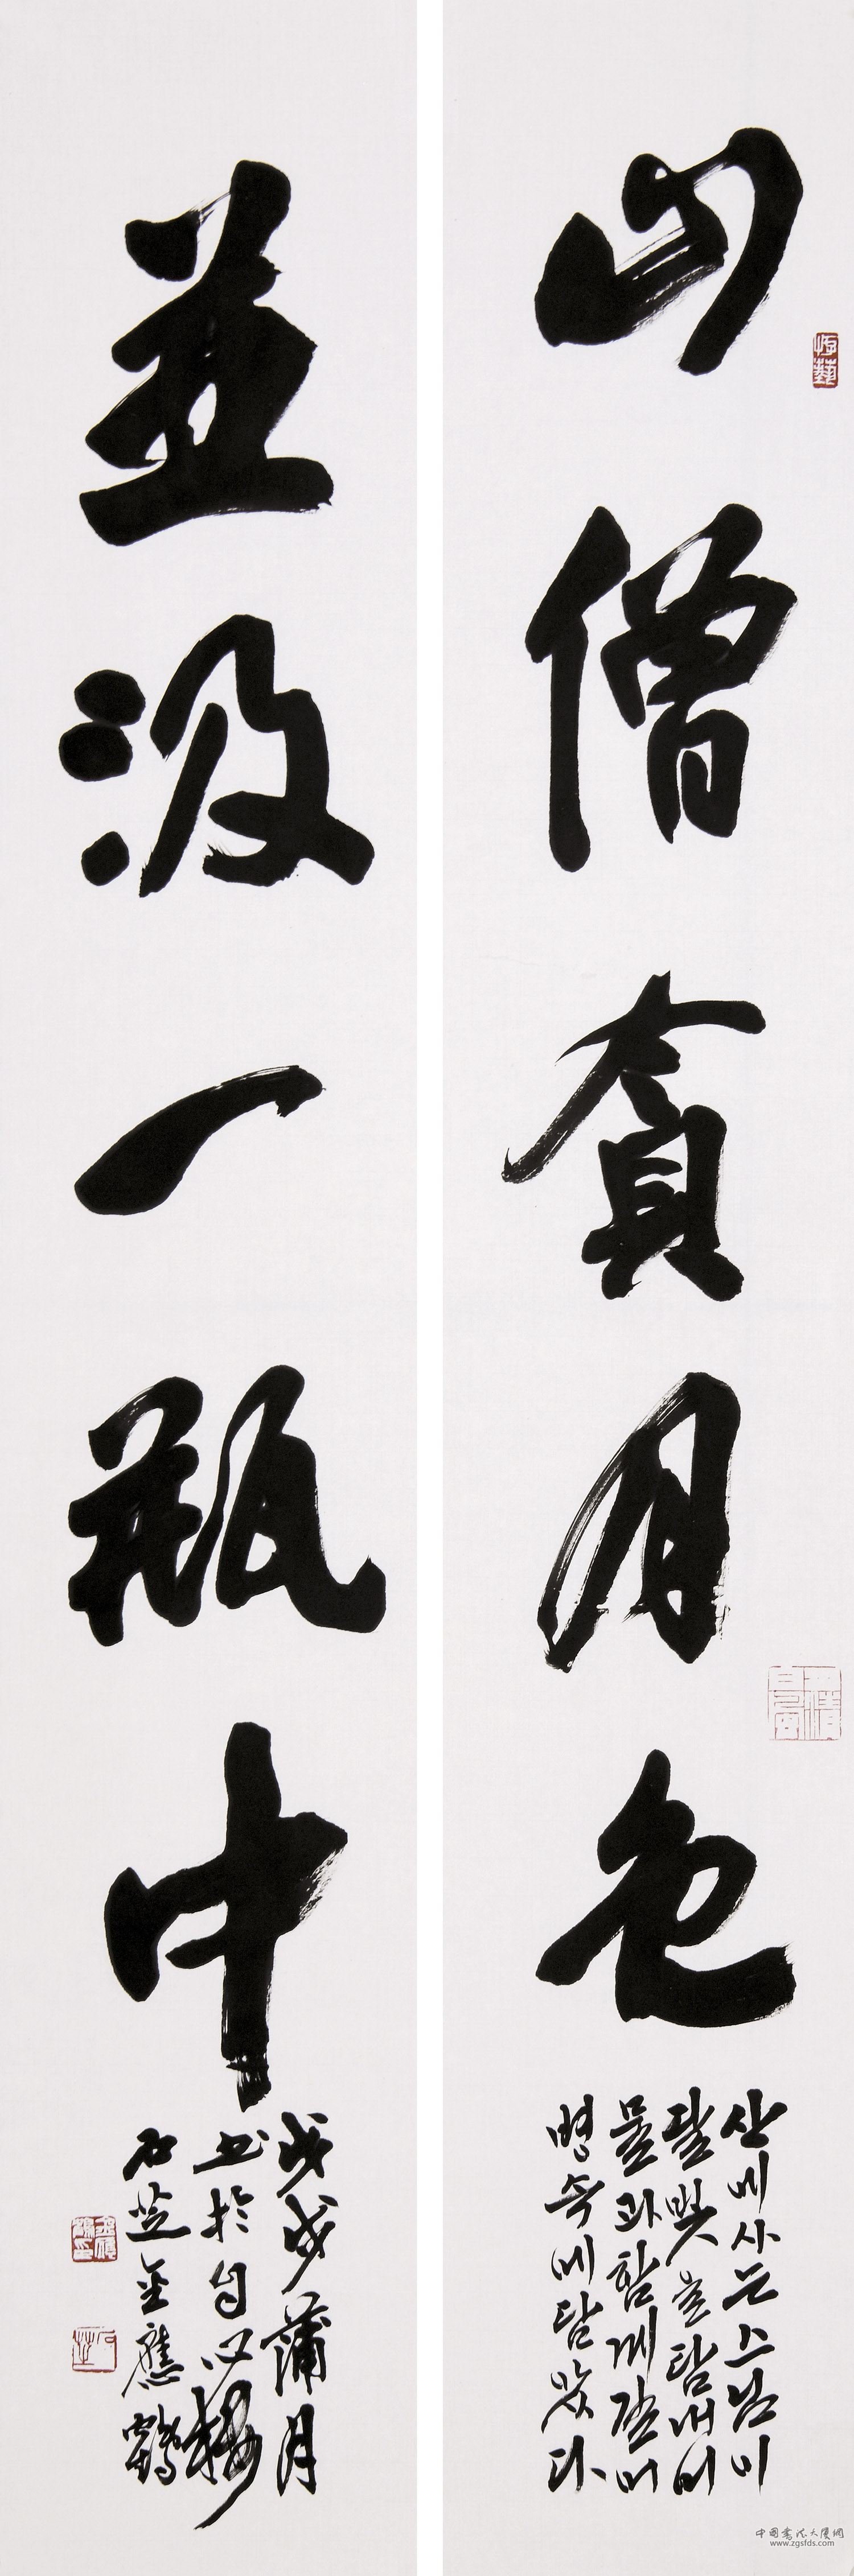 山僧貪月色
산에 사는 스님이
달빛을 탐내어
물과 함께 길어
병 속에 담았다
並汲一瓶中
戊戌蒲月
書於自心樓
石芝金應鶴
中国書法大厦網
www.zgsfds.com